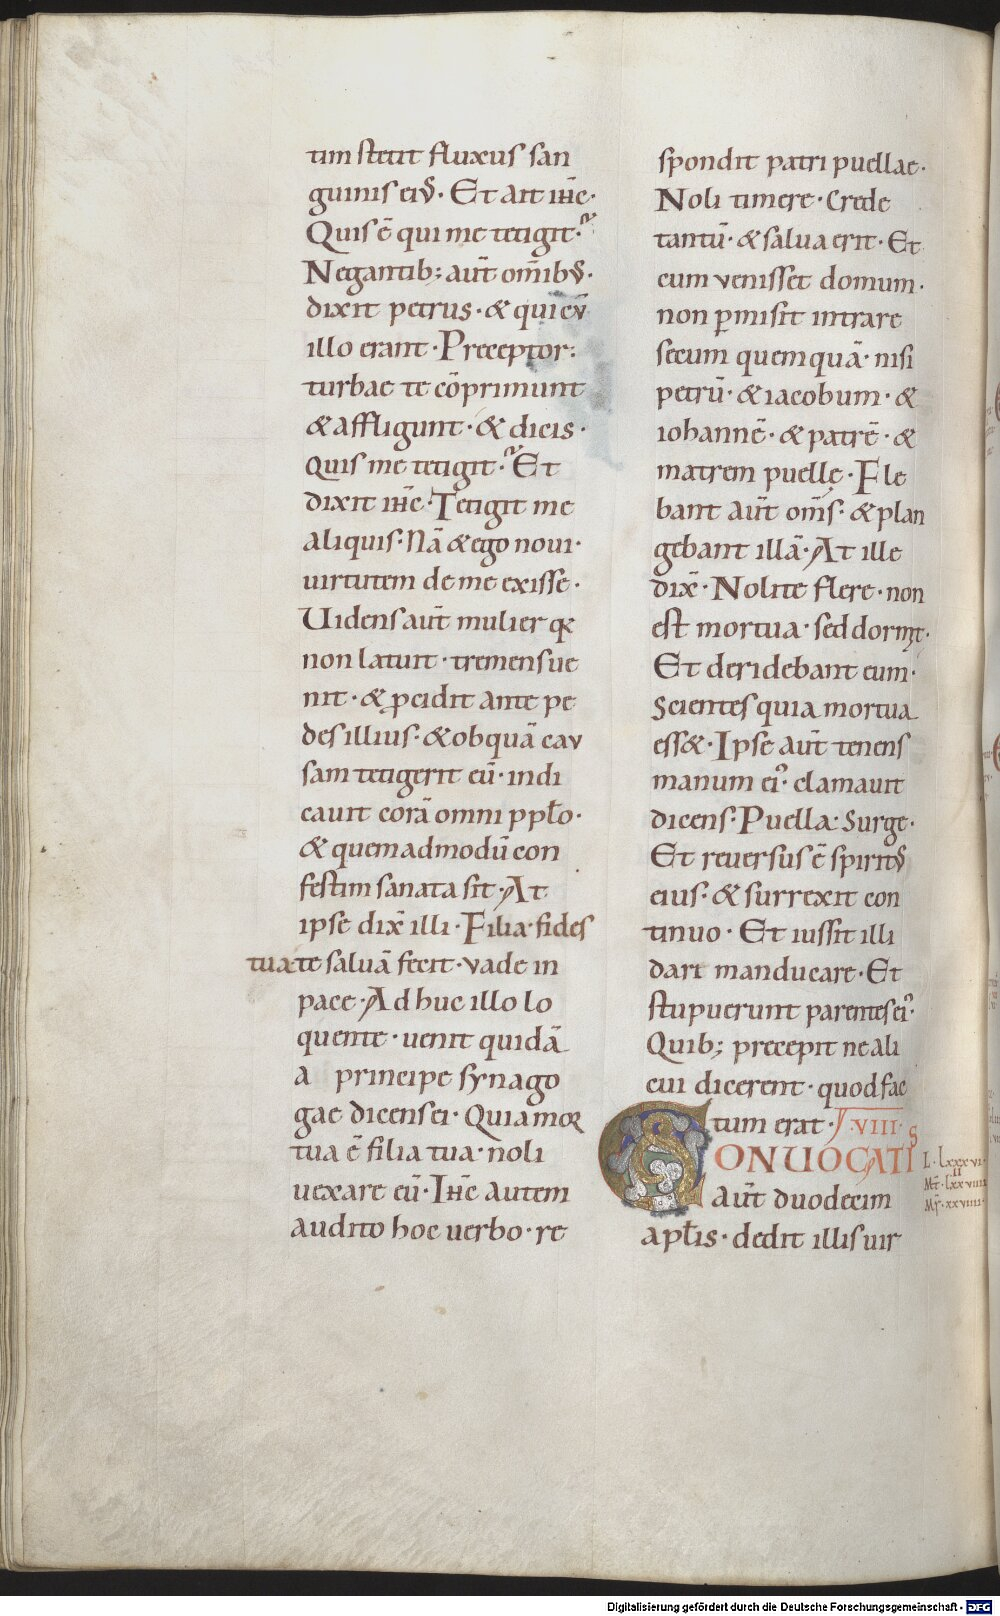 tim stetit fluxus san
guinis eiꝰ· Et ait ihc̄·
Quis ē qui me tetigit·
Negantib; aut̄ om̄ibꝰ·
dixit petrus· & qui cū
illo erant· Preceptor:
turbae te cōprimunt
& affligunt· & dicis·
quis me tetigit· Et
dixit ihc̄· Tetigit me
aliquis· Nā & ego noui·
uirtutem de me exisse·
Uidens aut̄ mulier qꝛ
non latuit· tremens ue
nit· & ꝓcidit ante pe
des illius· & ob quā cau
sam tetigerit eū· indi
cauit corā omni pplo·
& quemadmodū con
festim sanata sit· At
ipse dix̄ illi· Filia· fides
tua te saluā fecit· vade in
pace· Adhuc illo lo
quente· uenit quidā
a principe synago
gae dicens ei· Quia mor
tua ē filia tua· noli
uexare eū· Ihc̄ autem
audito hoc uerbo· re
spondit patri puellae·
Noli timere· Crede
tantū· & salua erit· Et
cum venisset domum·
non ꝑmisit intrare
secum quemquā· nisi
petrū· & iacobum· &
iohannē· & patrē· &
matrem puellę· Fle
bant aut̄ om̄s· & plan
gebant illā· At ille
dix̄· Nolite flere· non
est mortua· sed dormit·
Et deridebant eum·
Scientes quia mortua
ess&· Ipse aut̄ tenens
manum eiꝰ· clamauit
dicens· Puella· Surge·
Et reuersus ē spiritꝰ
eius· & surrexit con
tinuo· Et iussit illi
dari manducare· Et
stupuerunt parentes eiꝰ·
Quib; precepit ne ali
cui dicerent· quod fac
tum erat· VIII·
CONUOCATIS
aut̄ duodecim
aplis· dedit illis uir
L· lxxxvi·
II
Mt̄· lxxviiii
Mr̄· xxviiii
Digitalisierung gefördert durch die Deutsche Forschungsgemeinschaft - DFG